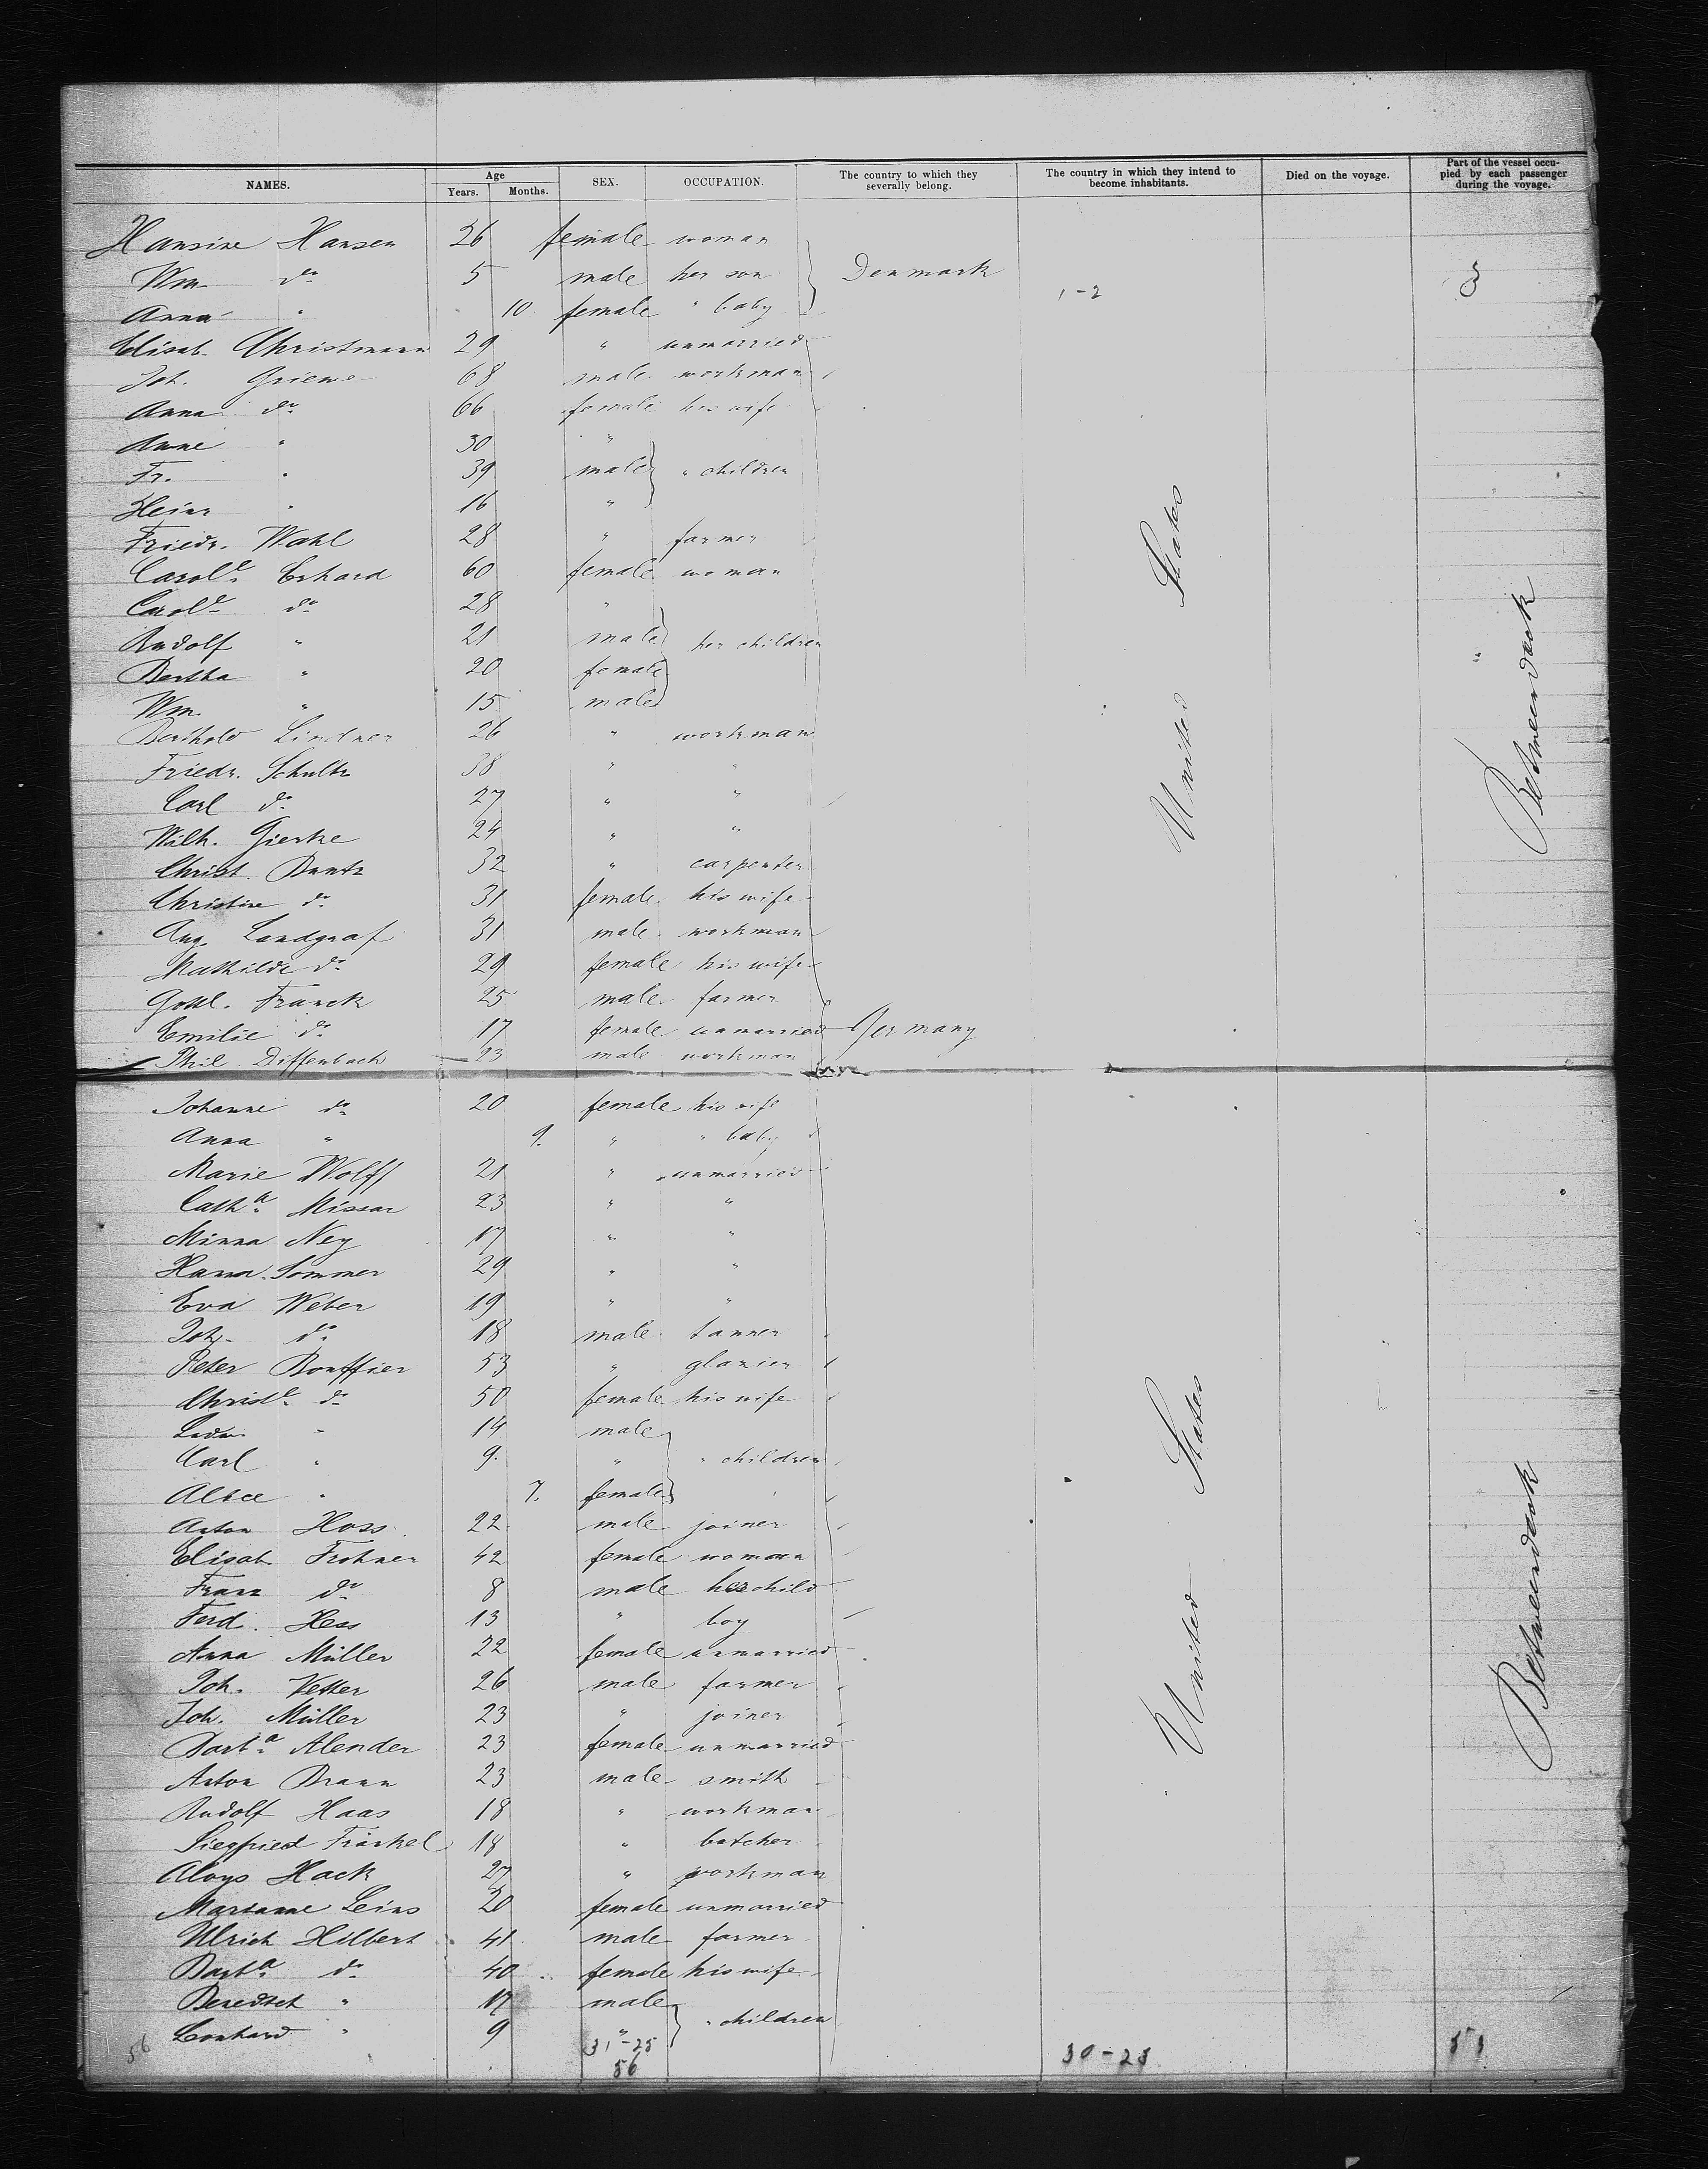 NAMES. Age Years. Months. SEX. OCCUPATION. The country to which they severally belong. The country in which they intend to become inhabitants. Died on the voyage. Part of the vessel occupied by each passenger during the voyage.
Hansine Hansen 26 female woman
Wm do 5 male her son Denmark 3
Anna " 10 female " baby 1-2
Elisab. Christmann 29 " unmarried
Joh. Grieme 68 male workman
Anna do 66 female his wife
Anne " 30 "
Fr. " 39 male " children
Heinr " 16 "
Friedr. Wahl 28 " farmer
Carole Erhard 60 female woman
Carole do 28 "
Rudolf " 21 male her children
Bertha " 20 female
Wm. " 15 male
Berthold Lindner 26 " workman
Friedr. Schultz 38 " "
Carl do 27 " "
Wilh. Gierke 24 " "
Christ. Bentz 32 " carpenter
Christine do 31 female his wife
Aug. Landgraf 31 male workman
Mathilde do 29 female his wife
Gottl. Franck 25 male farmer
Emilie do 17 female unmarried Germany
Phil. Diffenbach 23 male workman
United States
Betweendeck
Johanne do 20 female his wife
Anna " 9. " " baby
Marie Wolff 21 " unmarried
Catha Missar 23 " "
Minna Ney 17 " "
Hanna Sommer 29 " "
Eva Weber 19 " "
Joh. do 18 male tanner
Peter Bouffier 53 " glazier
Christe do 50 female his wife
Ludw. " 14 male
Carl " 9. " " children
Alice " 7. female
Anton Hoss 22 male joiner
Elisab Frohner 42 female woman
Franz do 8 male her child
Ferd. Hess 13 " boy
Anna Müller 22 female unmarried
Joh. Vetter 26 male farmer
Joh. Müller 23 " joiner
Barba Alender 23 female unmarried
Anton Braun 23 male smith
Rudolf Haas 18 " workman
Siegfried Fränkel 18 " butcher
Aloys Hack 27 " workman
Marianne Leins 20 female unmarried
Ulrich Hilbert 41 male farmer
Barba do 40 female his wife
Benedict " 17 male
Leonhard " 9 " " children
United States
Betweendeck
56 31-25 30-23 53
56